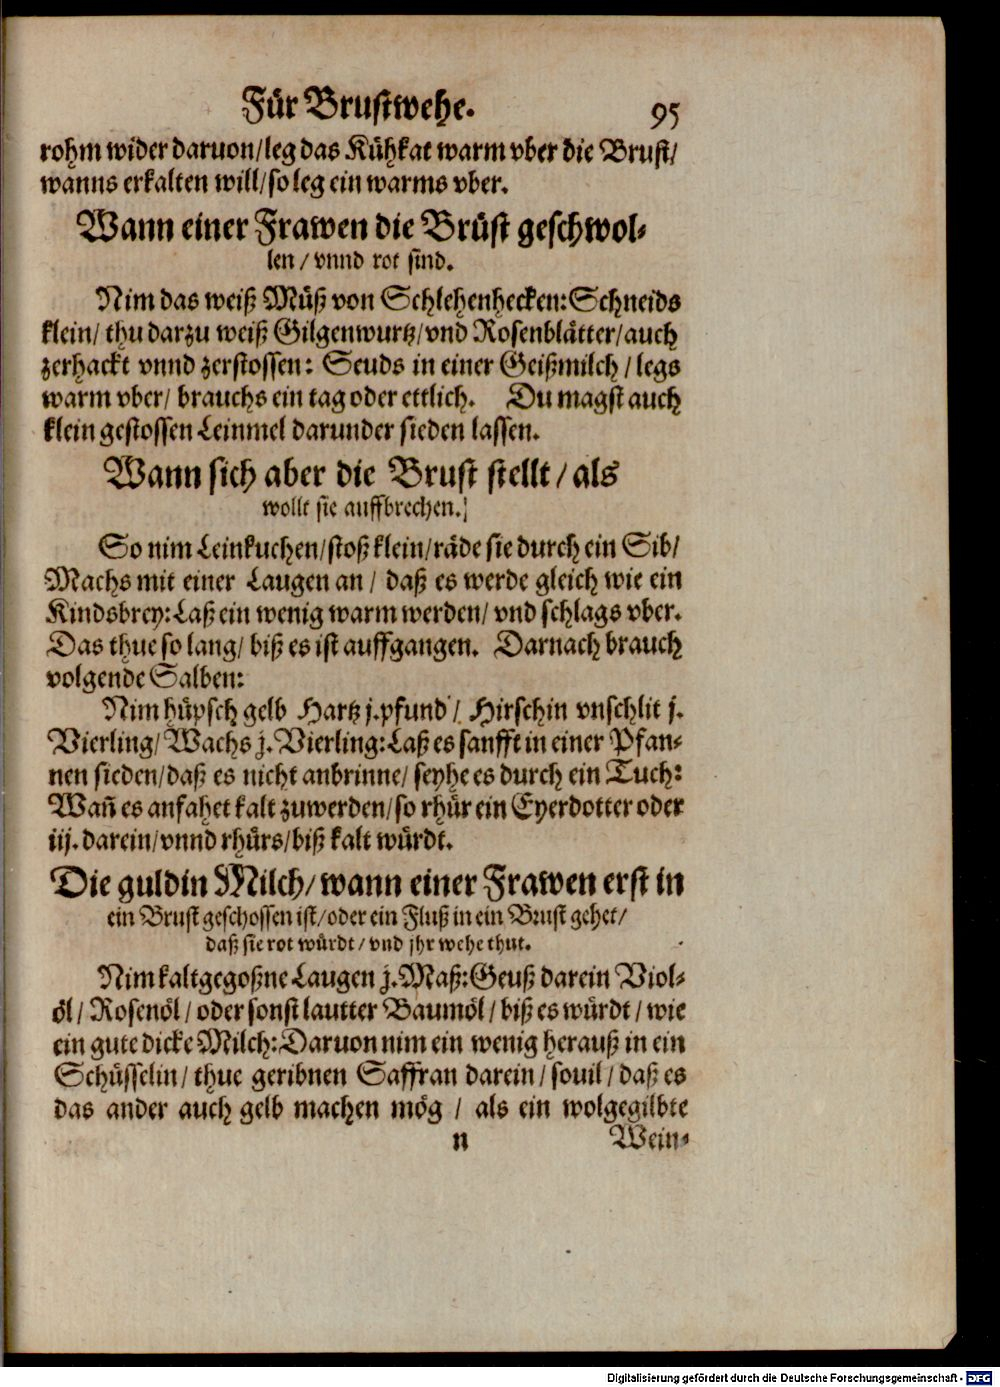 Für Brustwehe. 95
rohm wider daruon/leg das Kühkat warm vber die Brust/
wanns erkalten will/so leg ein warms vber.
Wann einer Frawen die Brüst geschwol-
len/vnnd rot sind.
Nim das weiß Müß von Schlehenhecken:Schneids
klein/thu darzu weiß Gilgenwurtz/vnd Rosenblätter/auch
zerhackt vnnd zerstossen: Seuds in einer Geißmilch/legs
warm vber/brauchs ein tag oder ettlich. Du magst auch
klein gestossen Leinmel darunder sieden lassen.
Wann sich aber die Brust stellt/als
wollt sie auffbrechen.
So nim Leinkuchen/stoß klein/räde sie durch ein Sib/
Machs mit einer Laugen an/daß es werde gleich wie ein
Kindsbrey:Laß ein wenig warm werden/vnd schlags vber.
Das thue so lang/biß es ist auffgangen. Darnach brauch
volgende Salben:
Nim hüpsch gelb Hartz j.pfund/Hirschin vnschlit j.
Vierling/Wachs j.Vierling:Laß es sanfft in einer Pfan-
nen sieden/daß es nicht anbrinne/seyhe es durch ein Tuch:
Wañ es anfahet kalt zuwerden/so rhür ein Eyerdotter oder
iij.darein/vnnd rhürs/biß kalt würdt.
Die guldin Milch/wann einer Frawen erst in
ein Brust geschossen ist/oder ein Fluß in ein Brust gehet/
daß sie rot würdt/vnd jhr wehe thut.
Nim kaltgegoßne Laugen j.Maß:Geuß darein Viol-
öl/Rosenöl/oder sonst lautter Baumöl/biß es würdt/wie
ein gute dicke Milch:Daruon nim ein wenig herauß in ein
Schüsselin/thue geribnen Saffran darein/souil/daß es
das ander auch gelb machen mög/als ein wolgegilbte
n Wein-
Digitalisierung gefördert durch die Deutsche Forschungsgemeinschaft - DFG